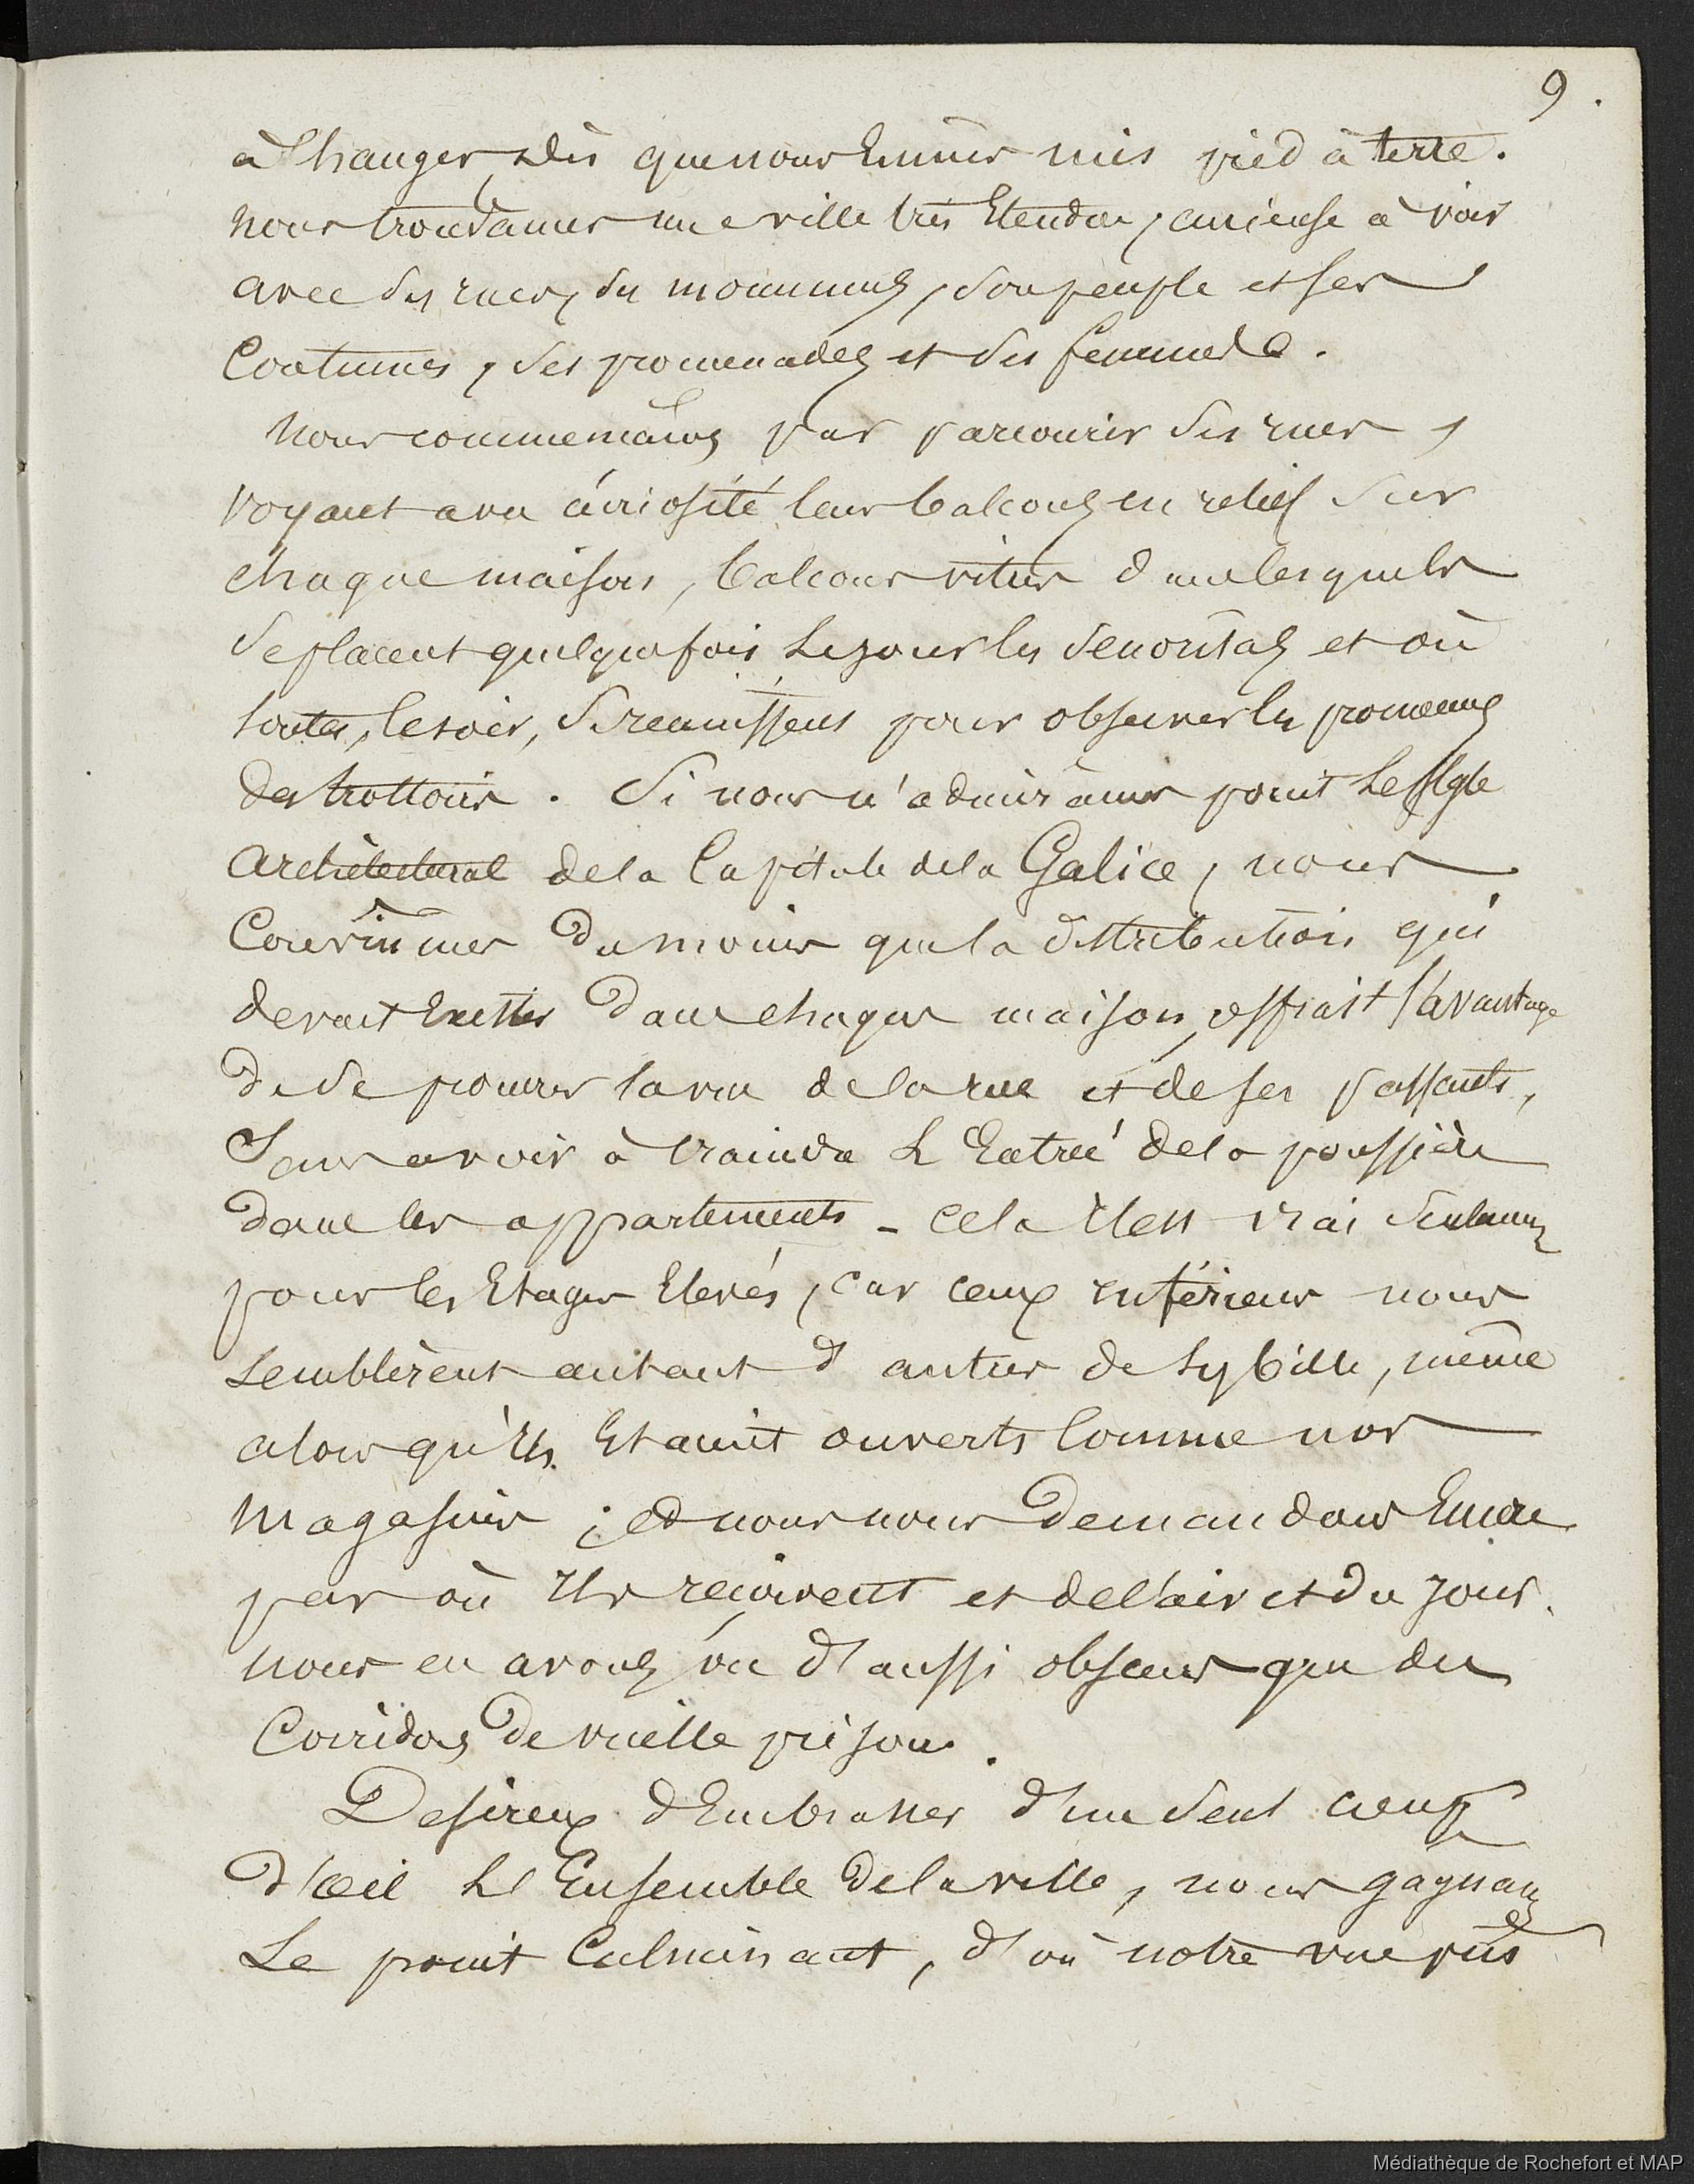 9.
à changer, dès que nous eûmes mis pied à terre.
nous trouvâmes une ville très etendue, curieuse à voir
avec ses rues, ses monuments, son peuple et ses
Coutumes, ses promenades et ses femmes.
nous commençâmes par parcourir ses rues,
voyant avec curiosité leurs balcons en relief sur
chaque maison, balcons vitrés dans lesquels
se placent quelquefois le jour les senoritas et où
toutes, le soir, se reunissent pour observer les promeneurs
des trottoirs. Si nous n'admirâmes point le style
architectural de la Capitale de la Galice, nous
Convînmes du moins que la distribution qui
devait exister dans chaque maison, offrait l'avantage
de se procurer la vue de la rue et de ses passants,
sans avoir à craindre l'Entrée de la poussière
dans les appartements - cela n'est vrai seulement
pour les Etages Elevés, car ceux inférieurs nous
semblèrent autant d'antres de sybille, même
alors qu'ils Etaient ouverts comme nos
magasins ; et nous nous demandons Encore
par où ils reçoivent et de l'air et du jour.
nous en avons vu d'aussi obscurs que des
Corridors de vieille prison.
Desireux d'Embrasser d'un seul coup
d'œil l'Ensemble de la ville, nous gagnames
Le point culminant, d'où notre vue pût
Médiathèque de Rochefort et MAP